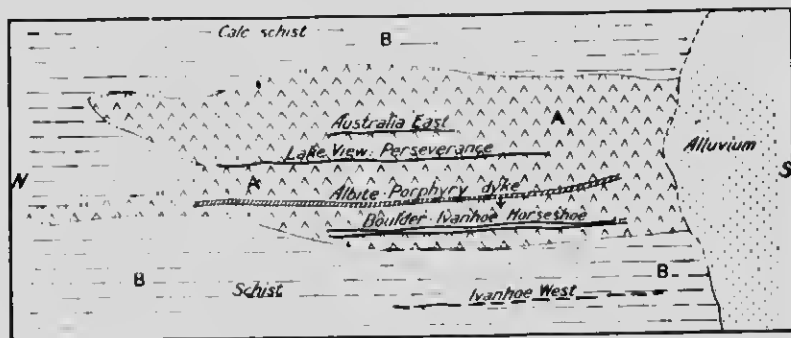 Calc schist
B
Australia East
A
Lake View: Perseverance
Alluvium
N
A
S
Albite Porphyry dyke
Boulder Ivanhoe Horseshoe
B
B
Schist
Ivanhoe West